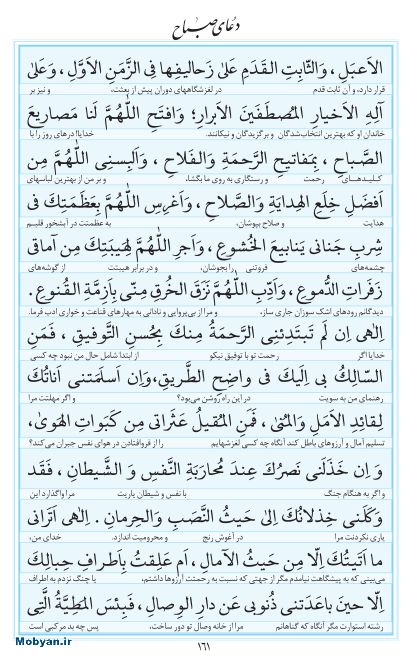 دعای صباح
الاَعبَلِ ، وَالثّابِتِ القَدَمِ عَلیٰ زَحالیفِها فِی الزَّمَنِ الاَوَّلِ ، وَعَلیٰ
قرار دارد، و آن ثابت قدم در لغزشگاههای دوران پیش از بعثت، و نیز بر
آلِهِ الاَخیارِ المُصطَفَینَ الاَبرارِ؛ وَافتَحِ اللّٰهُمَّ لَنا مَصاریعَ
خاندان او که بهترین انتخاب‌شدگان و برگزیدگان و نیکانند. خدایا! درهای روز را با
الصَّباحِ ، بِمَفاتیحِ الرَّحمَةِ وَالفَلاحِ ، وَاَلبِسنِی اللّٰهُمَّ مِن
کلیدهای رحمت و رستگاری به روی ما بگشا، و بر من از بهترین لباسهای
اَفضَلِ خِلَعِ الهِدایَةِ وَالصَّلاحِ ، وَاَغرِسِ اللّٰهُمَّ بِعَظَمَتِكَ فی
هدایت و صلاح بپوشان، به عظمتت در آبشخور قلبم
شِربِ جَنانی یَنابیعَ الخُشوعِ ، وَاَجرِ اللّٰهُمَّ لِهَیبَتِكَ مِن آماقی
چشمه‌های فروتنی را بجوشان، و در برابر هیبتت از گوشه‌های
زَفَراتِ الدُّموعِ ، وَاَدِّبِ اللّٰهُمَّ نَزَقَ الخُرقِ مِنّی بِاَزِمَّةِ القُنوعِ .
دیدگانم رودهای اشک سوزان جاری ساز، و مرا از بی‌پروایی و نادانی به مهارهای قناعت و خواری ادب فرما.
اِلٰهی اِن لَم تَبتَدِئنِی الرَّحمَةُ مِنكَ بِحُسنِ التَّوفیقِ ، فَمَنِ
خدایا اگر رحمت تو با توفیق نیکو از ابتدا شامل حال من نبود چه کسی
السّالِكُ بی اِلَیكَ فی واضِحِ الطَّریقِ،وَاِن اَسلَمَتنی اَناتُكَ
رهنمای من به سویت در این راه روشن می‌بود؟ و اگر مهلتت مرا
لِقائِدِ الاَمَلِ وَالمُنیٰ ، فَمَنِ المُقیلُ عَثَراتی مِن کَبَواتِ الهَویٰ،
تسلیم آمال و آرزوهای باطل کند آنگاه چه کسی لغزشهایم را از فروافتادن در هوای نفس جبران می‌کند؟
وَ اِن خَذَلَنی نَصرُكَ عِندَ مُحارَبَةِ النَّفسِ وَ الشَّیطانِ ، فَقَد
و اگر به هنگام جنگ با نفس و شیطان یاریت مرا واگذارد این
وَکَلَنی خِذلانُكَ اِلیٰ حَیثُ النَّصَبِ وَالحِرمانِ . اِلٰهی اَتَرانی
یاری نکردنت مرا در آغوش رنج و محرومیت اندازد. خدای من،
ما اَتَیتُكَ اِلّا مِن حَیثُ الآمالِ ، اَم عَلِقتُ بِاَطرافِ حِبالِكَ
می‌بینی که به پیشگاهت نیامدم مگر از جهتی که نسبت به رحمتت آرزوها داشتم، یا چنگ نزدم به اطراف
اِلّا حینَ باعَدَتنی ذُنوبی عَن دارِ الوِصالِ ، فَبِئسَ المَطِیَّةُ الَّتی
رشته استوارت مگر آنگاه که گناهانم مرا از خانه وصال تو دور ساخت، پس چه بد مرکبی است
۱۶۱
Mobyan.ir